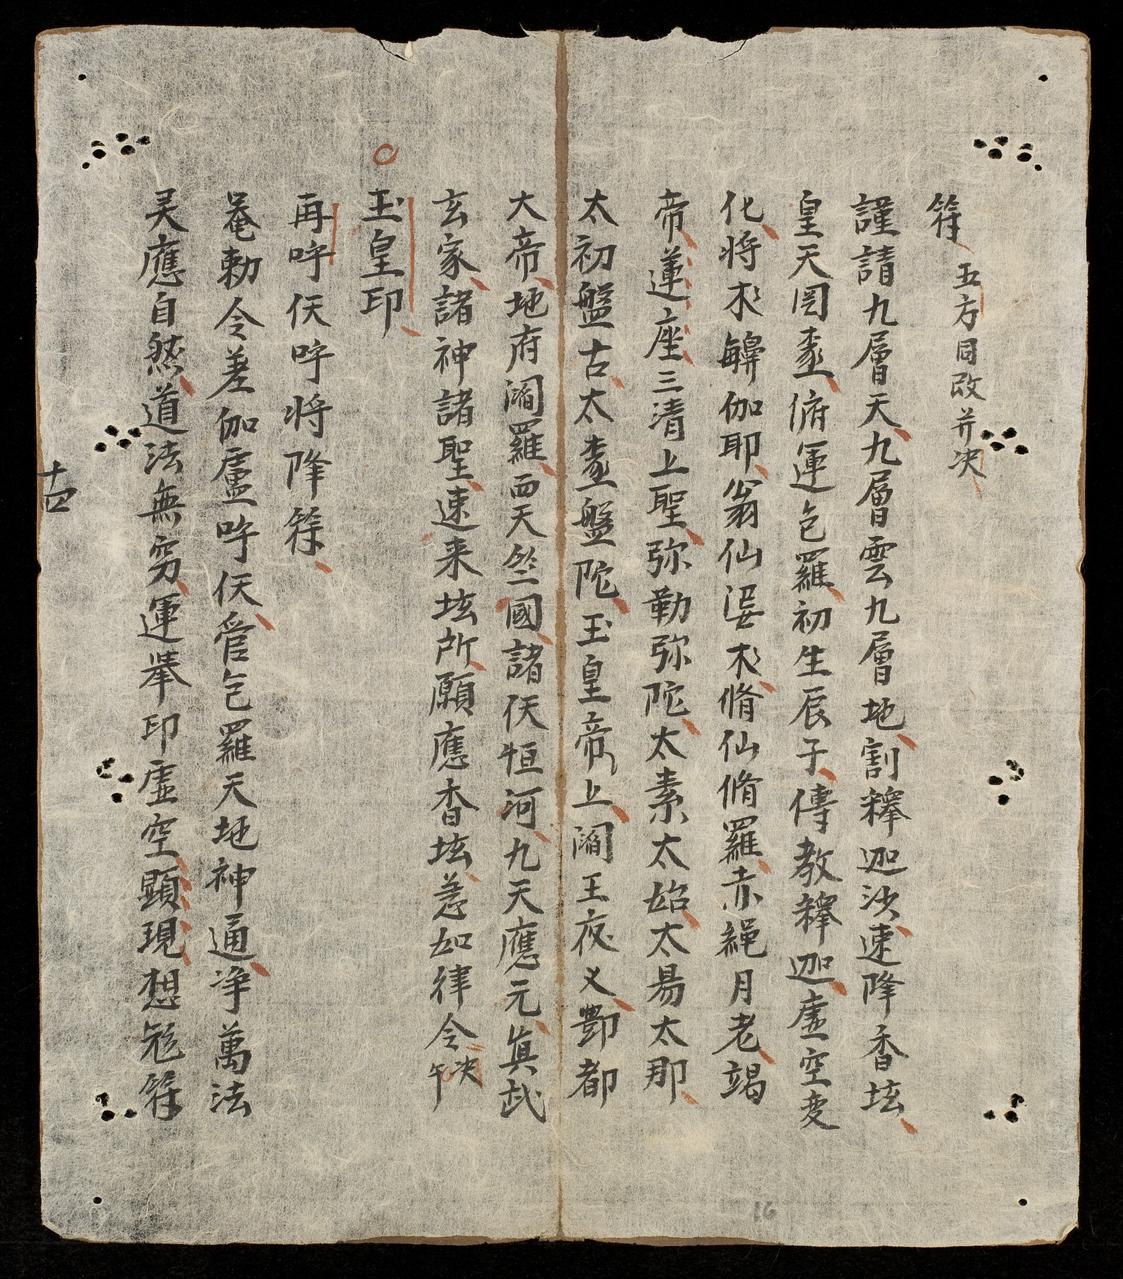 符 五方同改并决
謹請九層天九層雲九層地割釋迦沙速降香坛
皇天罡臺俯運乞羅初生辰子傳教釋迦虛空变
化将木觪伽耶翁仙婆木脩仙脩羅赤繩月老竭
帝蓮座三清上聖弥勒弥陀太素太始太易太那
太初盤古太臺盤陀玉皇帝上閻王夜乂酆都
大帝地府閻羅西天竺國諸仸恒河九天應元真武
玄家諸神諸聖速来坛所願應香坛急如律令 决午
玉皇印
再呼仸呼将降符
菴勅令差伽廬呼仸管乞羅天地神通净萬法
灵應自然道法無穷運举印虛空顕現想冠符
十四
16